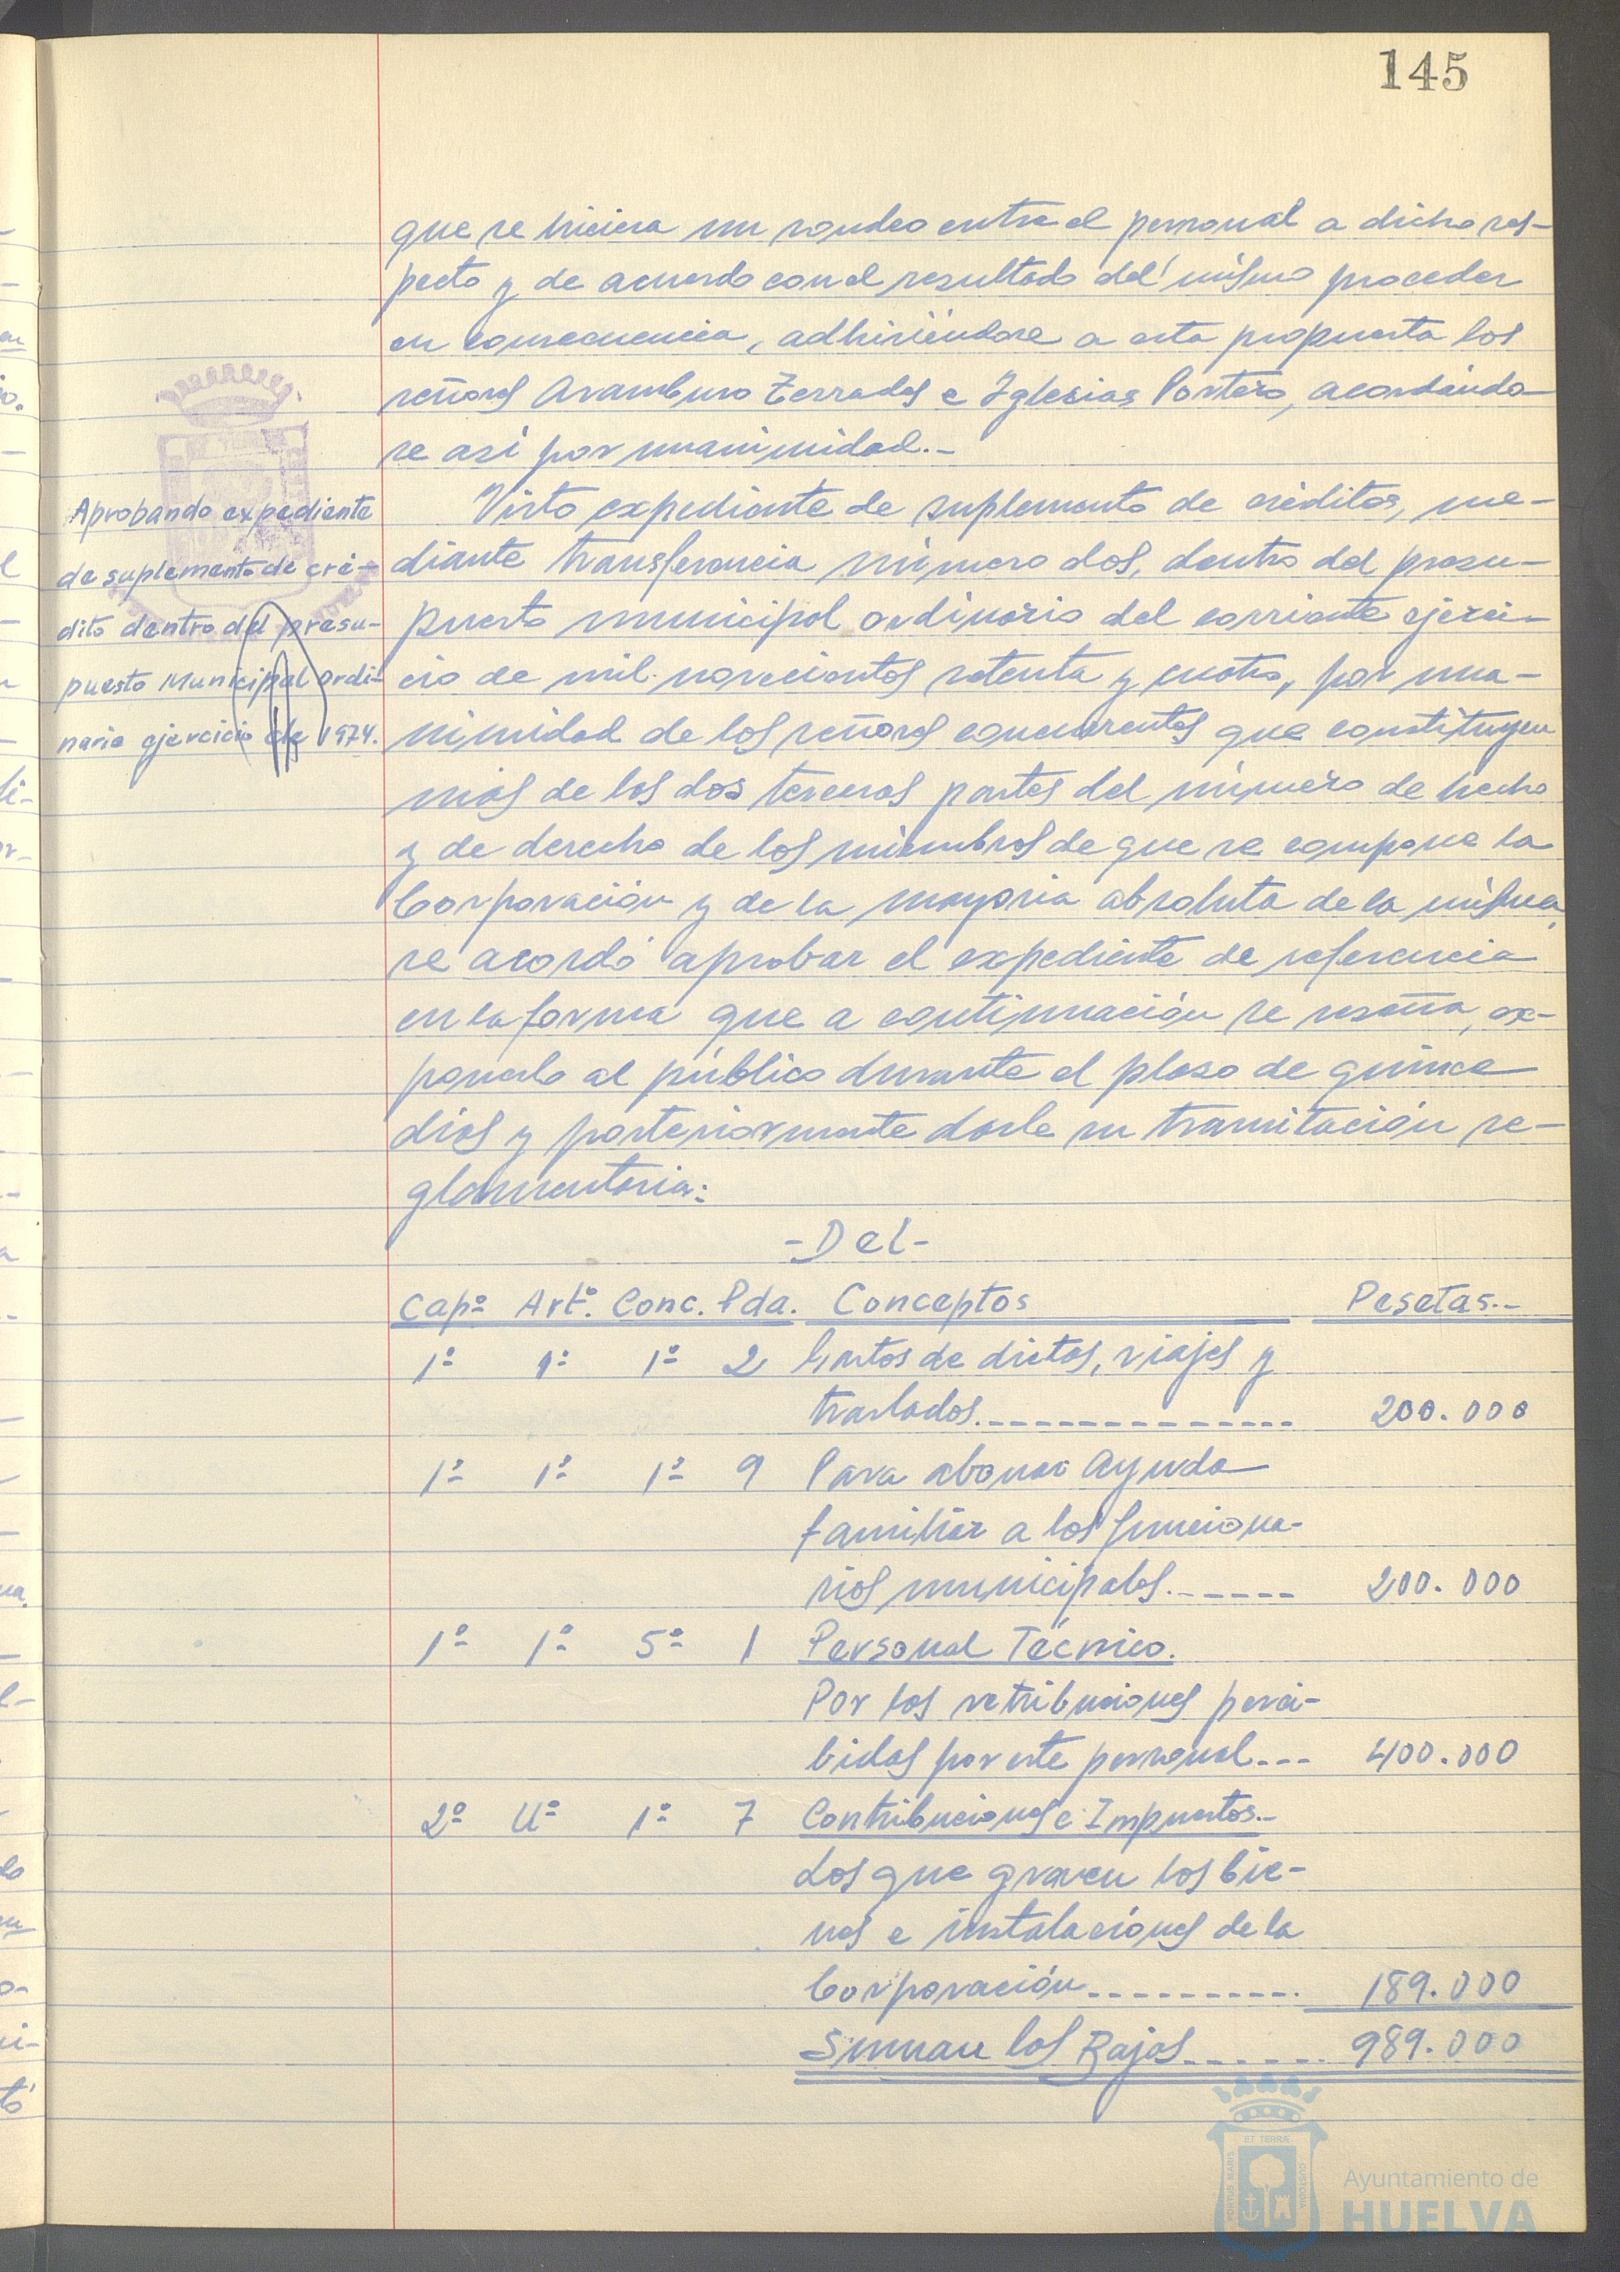 145
que se hiciera un sondeo entre el personal a dicho res-
pecto y de acuerdo con el resultado del mismo proceder
en consecuencia, adhiriéndose a esta propuesta los
señores Aramburo Terrades e Iglesias Portero, acordándo-
se así por unanimidad.-
Aprobando expediente
de suplemento de cré-
dito dentro del presu-
puesto Municipal ordi-
nario ejercicio de 1974.
Visto expediente de suplemento de créditos, me-
diante transferencia número dos, dentro del presu-
puesto municipal ordinario del corriente ejerci-
cio de mil novecientos setenta y cuatro, por una-
nimidad de los señores concurrentes que constituyen
más de las dos terceras partes del número de hecho
y de derecho de los miembros de que se compone la
Corporación y de la mayoría absoluta de la misma,
se acordó aprobar el expediente de referencia
en la forma que a continuación se reseña, ex-
ponerlo al público durante el plazo de quince
días y posteriormente darle su tramitación re-
glamentaria:
-Del-
Capº Artº. Conc. Pda. Conceptos Pesetas.-
1º 1º 1º 2 Gastos de dietas, viajes y
traslados.------------- 200.000
1º 1º 1º 9 Para abonar Ayuda
familiar a los funciona-
rios municipales.------ 200.000
1º 1º 5º 1 Personal Técnico.
Por las retribuciones perci-
bidas por este personal--- 400.000
2º Uº 1º 7 Contribuciones e Impuestos.-
Los que graven los bie-
nes e instalaciones de la
Corporación---------- 189.000
Suman las Bajas------ 989.000
PORTUS MARIS
ET TERRÆ
CUSTODIA
Ayuntamiento de
HUELVA